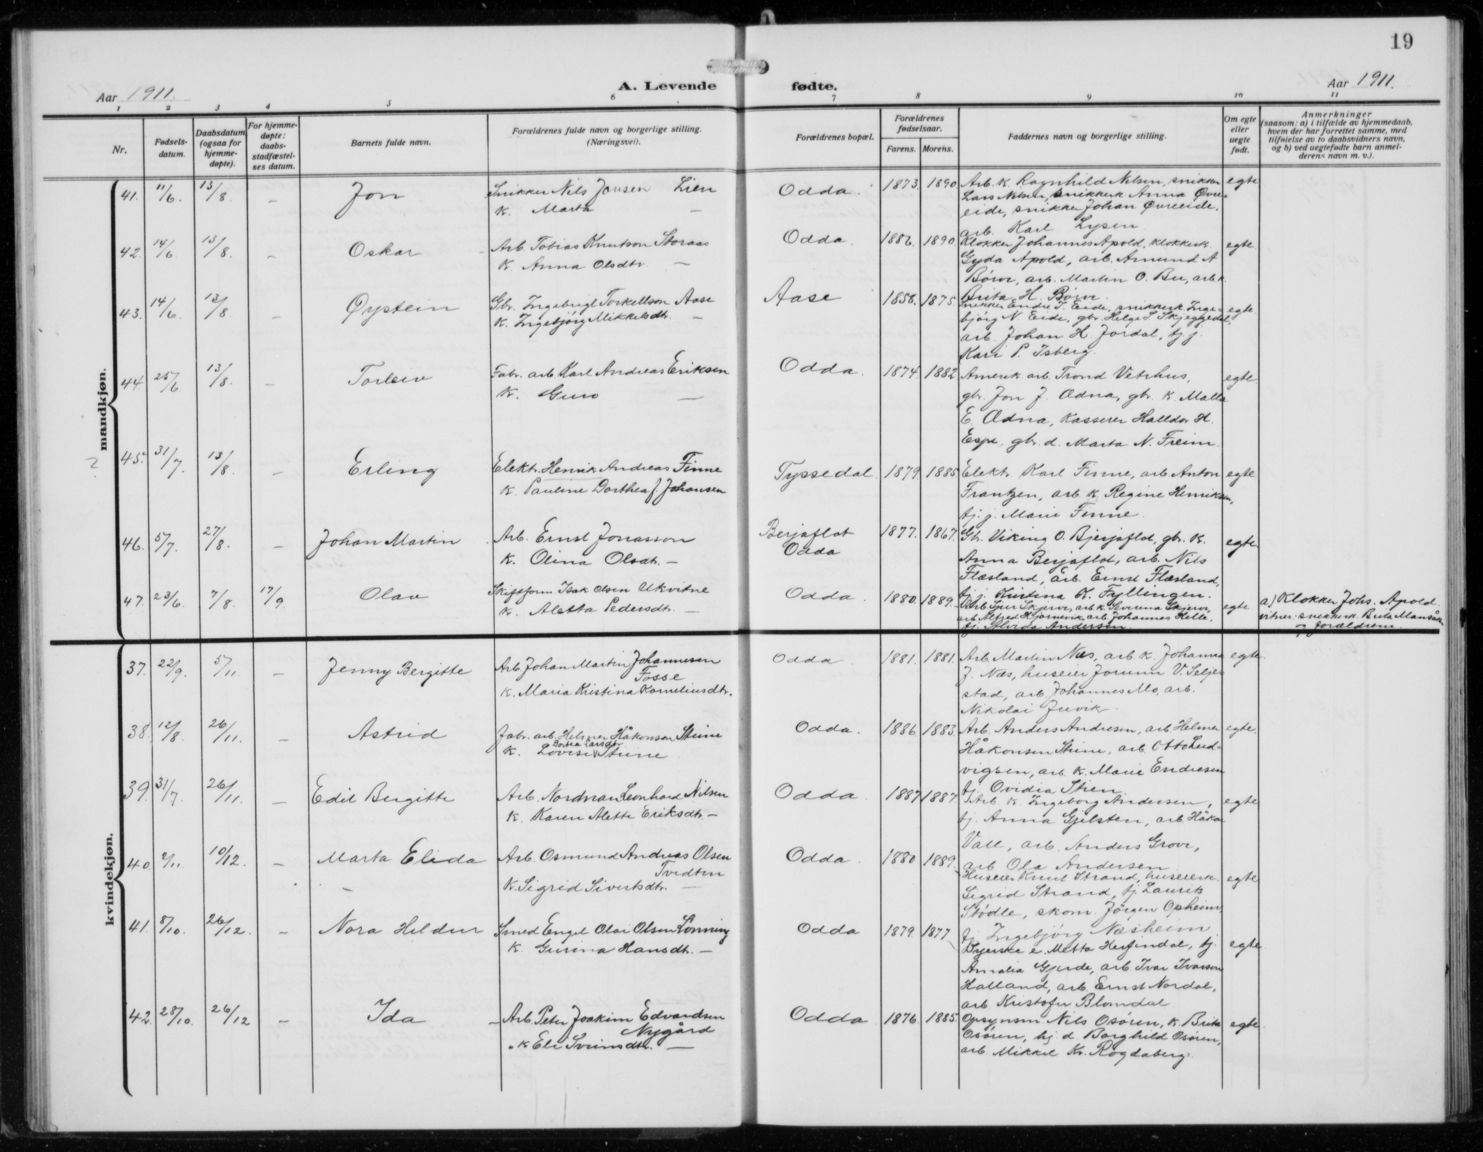 19
Aar 1911.
A. Levende
fødte.
Aar 1911.
1 2 3 4 5 6 7 8 9 10 11
Nr.
Fødsels-
datum.
Daabsdatum
(ogsaa for
hjemme-
døpte).
For hjemme-
døpte:
daabs-
stadfæstel-
ses datum.
Barnets fulde navn.
Forældrenes fulde navn og borgerlige stilling.
(Næringsvei).
Forældrenes bopæl.
Forældrenes
fødselsaar.
Farens. Morens.
Faddernes navn og borgerlig stilling.
Om egte
eller
uegte
født.
Anmerkninger
(saasom: a) i tilfælde av hjemmedaab,
hvem der har forrettet samme, med
tilføielse av to daabsvidners navn,
og b) ved uegtefødte barn anmel-
derens navn m. v.).
mandkjøn.
41. 11/6. 13/8. - Jon
Snikker Nils Jonsen Lien
K. Marta —
Odda. 1873. 1890.
Arb. K. Ragnhild Nilsen, snikker
Lars Nilsen, snikkerk Anna Øvre-
eide, snikker Johan Øvreeide,
arb. Karl Lysen
egte
42. 14/6 13/8. - Oskar
Arb. Tobias Knutson Storaas
K. Anna Olsdtr. —
Odda. 1886. 1890
Klokker Johannes Apold, klokkerk.
Gyda Apold, arb. Amund A
Børve, arb. Martin O. Bu, arb. k
Brita H. Børve.
egte
43. 14/6. 13/8 - Øystein
Gbr. Ingebrigt Torkellson Aase
K. Ingebjørg Mikkelsdtr. —
Aase 1858. 1875.
Snikker Endre T. Eide, snikkerk Inge-
bjørg N. Eide, gbr. Helge L. Skjeggedal,
arb. Johan H. Jordal, tj. j.
Kari P. Isberg.
egte
44 25/6 13/8. - Torleiv
Fabr. arb. Karl Andreas Eriksen
K. Guro —
Odda. 1874. 1882
Amerik. arb. Trond Vetrhus,
gbr. Jon J. Odna, gbr. k. Malla
E. Odna, Kasserer Halldor H.
Espe, gbr. d. Marta N. Freim.
egte
45. 31/7. 13/8. - Erling
Elektr. Henrik Andreas Finne
K. Pauline Dorthea f Johansen
Tyssedal 1879. 1885
Elektr. Karl Finne, arb. Anton
Frantzen, arb. k. Regine Henriksen,
tj. j. Marie Finne.
egte
46. 5/7. 27/8. - Johan Martin
Arb. Ernst Jonasson
K. Olina Olsdt. —
Berjaflot
Odda
1877. 1867.
Gb. Viking O. Bjerjaflot, gbr. k.
Anna Berjaflot, arb. Nils
Flæsland, arb. Ernst Flæsland,
tj. j. Kristina K. Fyllingen.
egte
47. 23/6. 7/8. 17/9. Olav
Skiftform. Isak Olsen Ukvitne
K. Aletta Pedersdt. —
Odda. 1880. 1889.
arb. Alfred Hjørnevik, arb. Johannes Helle,
egte
a.) Klokker Johs. Apold
vitner: snekkerk. Brita Mansåker
og forældrene.
kvindekjøn.
37. 22/9. 5/11. - Jenny Bergitte
Arb. Johan Martin Johannesen
Fosse
K. Maria Kristina Korneliusdt.
Odda. 1881. 1881.
Arb. Martin Næs, arb. k. Johanna
J. Næs, huseier Jorunn V. Seljes-
stad, arb. Johannes Mo, arb.
Nikolai Juvik.
egte.
38. 12/8. 26/11. - Astrid
Fabr. arb. Helmer Håkonsen Stune
K. Lovise Stune
Odda. 1886 1883.
Arb. Anders Andresen, arb Helmer
Håkonsen Stune, arb. Otto Lud-
vigsen, arb. k. Marie Endresen
tj. Ovidia Stien
egte.
39. 31/7. 26/11. - Edil Bergitte
Arb. Nordman Leonhard Nilsen
K. Karen Mette Eriksdt. —
Odda. 1887 1887
Arb. k Ingeborg Andersen,
tj. Anna Gjelsten, arb. Håkon
Vall, arb. Anders Grove,
arb. Ola Andersen
egte
40. 2/11. 10/12. - Marta Elida
Arb. Osmund Andreas Olsen
Tvedten
K. Sigrid Sivertsdt. —
Odda. 1880 1889.
Huseier Knut Strand, huseierk.
Sigrid Strand, tj. Laurits
Stødle, skom. Jörgen Opheim,
tj. Ingebjörg Næsheim
egte
41. 8/10. 26/12. - Nora Hildur
Smed Engel Olai Olsen Lønning
K. Gurina Hansdt. —
Odda 1879 1877.
Metta Herfindal, tj.
Amalia Gjerde, arb. Ivar Ivarson
Halland, arb. Ernst Nordal,
arb. Kristofer Blomdal
egte
42. 28/10. 26/12 - Ida
Arb. Peter Joakim Edvardsen
Nygård
K Eli Sveinsdtr. —
Odda 1876. 1885
Opsynsm. Nils Osøren, k. Brita
Osøren, hj. d Borghild Osøren,
arb. Mikkel Kr. Rogdaberg.
egte